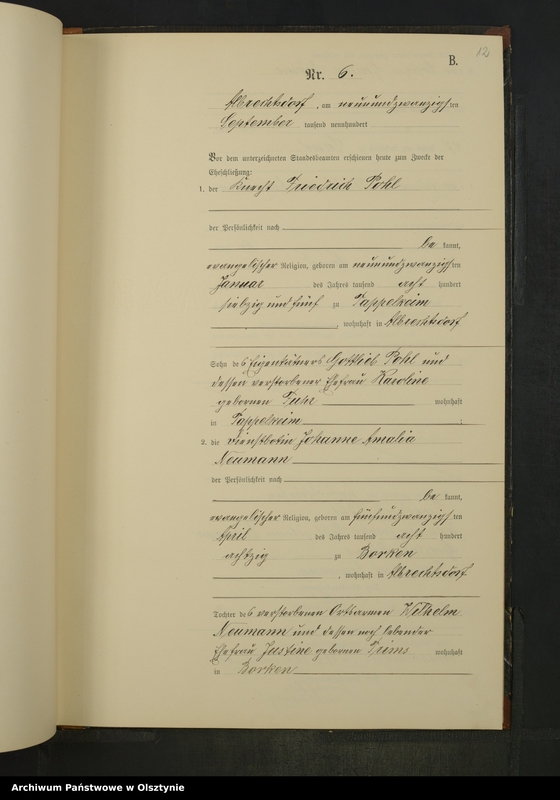 12
B.
Nr. 6.
Albrechtsdorf, am neunundzwanzigsten
September tausend neunhundert
Vor dem unterzeichneten Standesbeamten erschienen heute zum Zwecke der
Eheschließung:
1. der Knecht Friedrich Pohl
der Persönlichkeit nach
be kannt,
evangelischer Religion, geboren am neunundzwanzigsten
Januar des Jahres tausend acht hundert
siebzig und fünf zu Tappelkeim
, wohnhaft in Albrechtsdorf
Sohn des Eigenkätners Gottlieb Pohl und
dessen verstorbener Ehefrau Karoline
gebornen wohnhaft
in Tappelkeim ;
2. die Dienstbotin Johanne Amalia
Neumann
der Persönlichkeit nach
be kannt,
evangelischer Religion, geboren am fünfundzwanzigsten
April des Jahres tausend acht hundert
achtzig zu Borken
, wohnhaft in Albrechtsdorf
Tochter des verstorbenen Ortsarmen Wilhelm
Neumann und dessen noch lebender
Ehefrau Justine gebornen wohnhaft
in Borken
Archiwum Państwowe w Olsztynie